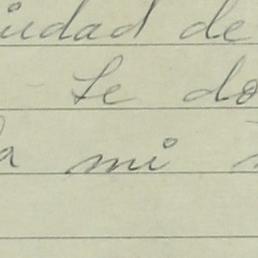 iudad de
- Se do
a mi